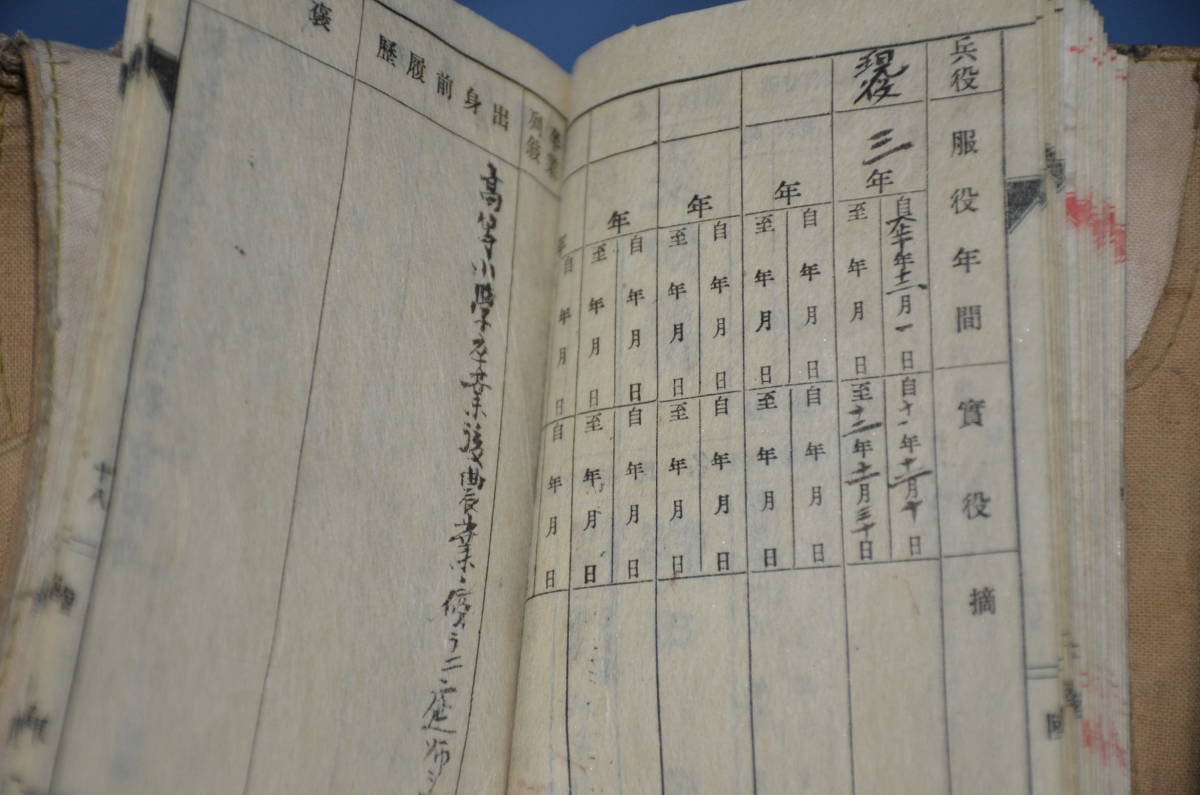 兵役
服役年間
實役
摘
現役
三年
自大正十年十二月一日
至 年 月 日
自十一年十二月十日
至十三年十一月三十日
年
自 年 月 日
至 年 月 日
自 年 月 日
至 年 月 日
年
自 年 月 日
至 年 月 日
自 年 月 日
至 年 月 日
年
自 年 月 日
至 年 月 日
自 年 月 日
至 年 月 日
年
自 年 月 日
自 年 月 日
出身前履歷
高等小學卒業後農業
褒
十八